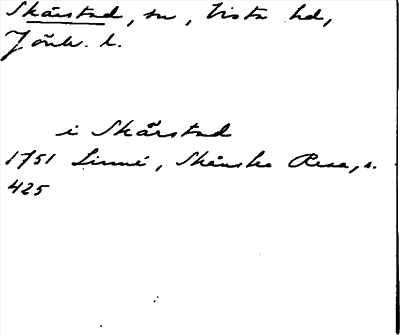 Skärstad, sn, Vista hd,
Jönk. l.
i Skärstad
1751 Linné, Skånska Resa, s.
425